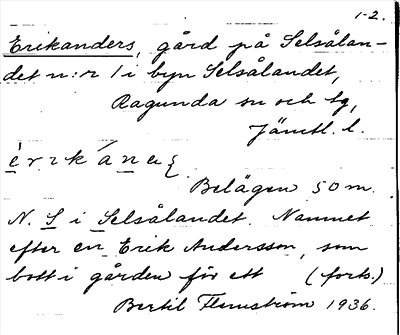 1-2.
Erikanders, gård på Selsålan-
det n:r 1 i byn Selsålandet,
Ragunda sn och tg,
Jämtl. l.
Belägen 50 m.
N. S i Selsålandet. Namnet
efter en Erik Andersson, som
bott i gården för ett (forts.)
Bertil Flemström 1936.